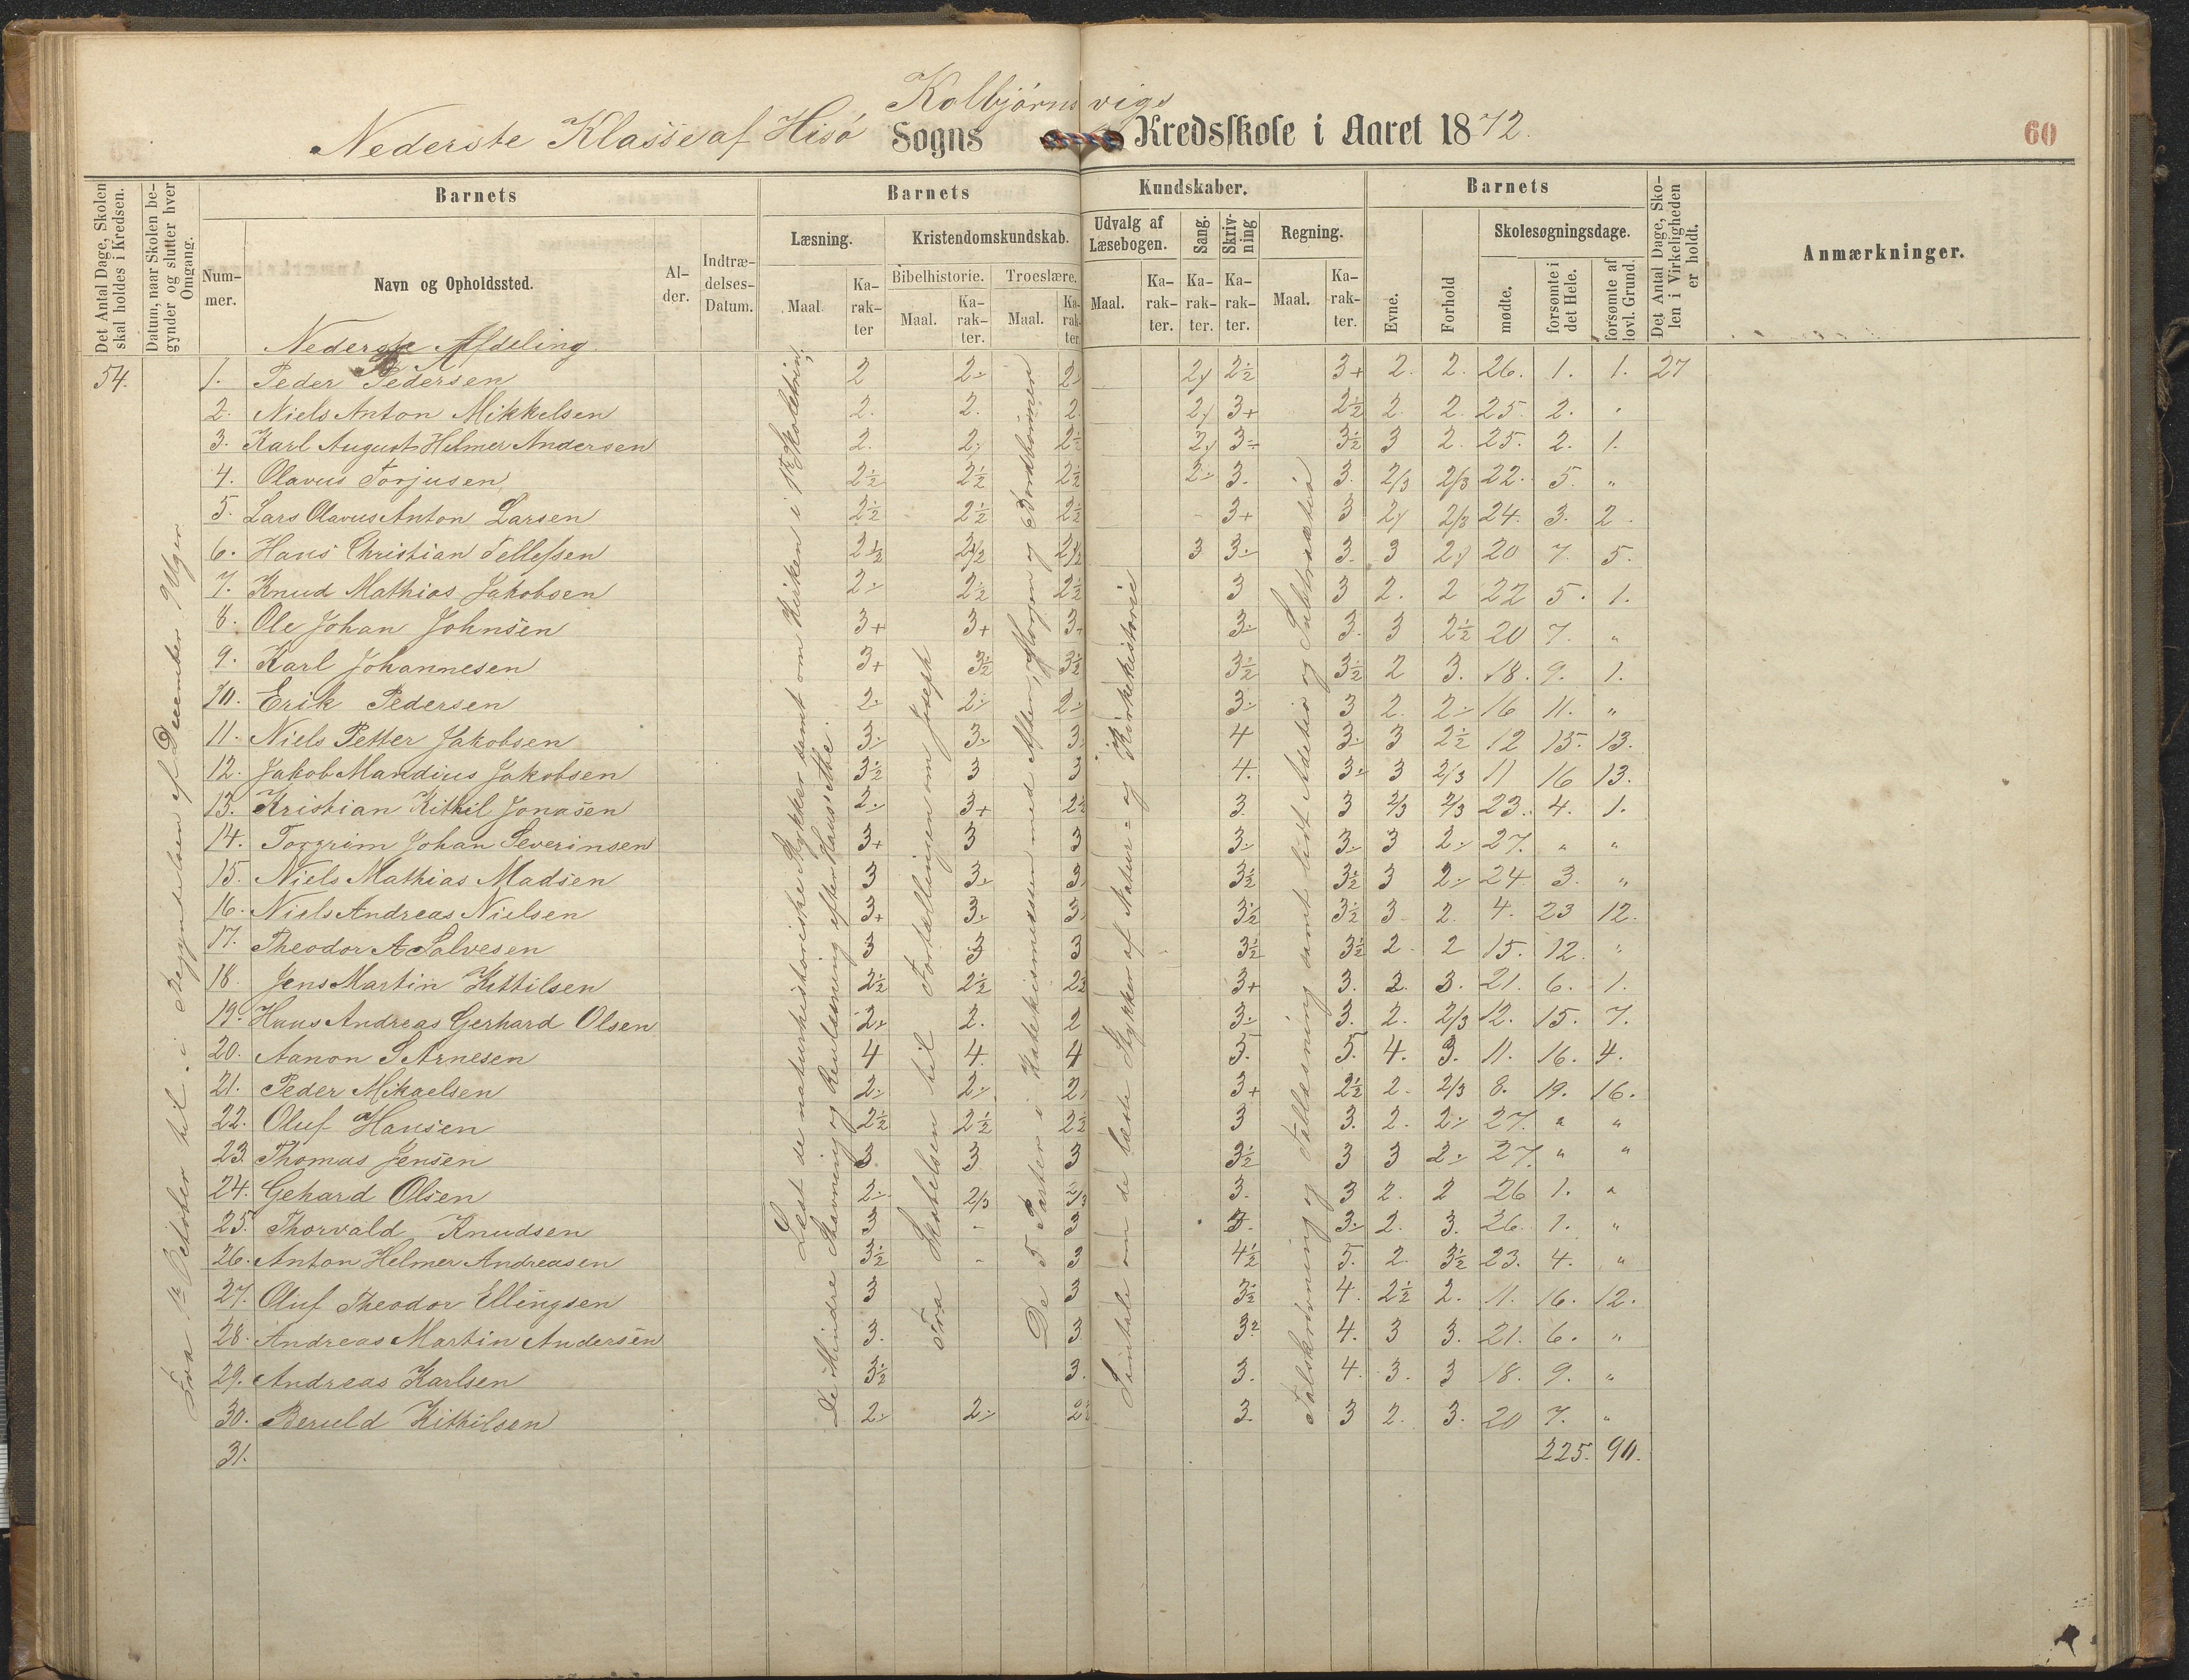 Kolbjørnsvigs
Nederste Klasse af Hisö Sogns Kredsskole i Aaret 1872.
60
Det Antal Dage, Skolen skal holdes i Kredsen.
Datum, naar Skolen begynder og slutter hver Omgang.
Barnets
Nummer.
Navn og Opholdssted.
Alder.
Indtrædelses-Datum.
Barnets
Læsning.
Maal
Karakter
Kristendomskundskab.
Bibelhistorie.
Maal.
Karakter.
Troeslære.
Maal.
Karakter
Kundskaber.
Udvalg af Læsebogen.
Maal.
Karakter.
Sang.
Karakter.
Skrivning
Karakter.
Regning.
Maal.
Karakter.
Barnets
Evne.
Forhold
Skolesøgningsdage.
mødte.
forsømte i det Hele.
forsømte af lovl. Grund.
Det Antal Dage, Skolen i Virkeligheden er holdt.
Anmærkninger.
Nederste Afdeling
54. 1. Peder Pedersen 2 2÷ 2÷ 2÷ 2½ 3+ 2. 2. 26. 1. 1. 27
2. Niels Anton Mikkelsen 2. 2. 2. 2÷ 3+ 2½ 2. 2. 25. 2. "
3. Karl August Helmer Andersen 2. 2÷ 2½ 2÷ 3÷ 3½ 3 2. 25. 2. 1.
4. Olavus Torjusen 2½ 2½ 2½ 2÷ 3. 3. 2/3 2/3 22. 5. "
5. Lars Olavus Anton Larsen 2½ 2½ 2½ - 3+ 3 2÷ 2/3 24. 3. 2.
6. Hans Christian Tellefsen 2½ 2½ 2½ 3 3÷ 3. 3 2÷ 20 7. 5.
7. Knud Mathias Jakobsen 2÷ 2½ 2½ 3 3 2. 2 22 5. 1.
8. Ole Johan Johnsen 3+ 3+ 3+ 3÷ 3. 3 2½ 20 7. "
9. Karl Johannesen 3+ 3½ 3½ 3½ 3½ 2 3. 18. 9. 1.
10. Erik Pedersen 2÷ 2÷ 2÷ 3÷ 3 2. 2÷ 16 11. "
11. Niels Petter Jakobsen 3÷ 3÷ 3÷ 4 3÷ 3 2½ 12 15. 13.
12. Jakob Mandius Jakobsen 3½ 3 3 4. 3÷ 3 2/3 11 16 13.
13. Kristian Kittil Jonasen 2÷ 3+ 2½ 3. 3 2/3 2/3 23. 4. 1.
14. Torgrim Johan Severinsen 3+ 3 3 3÷ 3÷ 3 2÷ 27. " "
15. Niels Mathias Madsen 3 3÷ 3÷ 3½ 3½ 3 2÷ 24 3. "
16. Niels Andreas Nielsen 3+ 3÷ 3÷ 3½ 3½ 3 2. 4. 23 12.
17. Theodor A Salvesen 3 3 3 3½ 3½ 2. 2 15. 12. "
18. Jens Martin Kittilsen 2½ 2½ 2½ 3+ 3. 2. 3. 21. 6. 1.
19. Hans Andreas Gerhard Olsen 2÷ 2. 2 3÷ 3. 2. 2/3 12. 15. 7.
20. Aanon S Arnesen 4 4. 4 5. 5. 4. 3. 11. 16. 4.
21. Peder Mikaelsen 2÷ 2÷ 2÷ 3+ 2½ 2. 2/3 8. 19. 16.
22. Oluf Hansen 2½ 2½ 2½ 3 3. 2. 2÷ 27. " "
23. Thomas Jensen 3 3. 3 3½ 3 3 2÷ 27. " "
24. Gehard Olsen 2÷ 2/3 2/3 3. 3 2. 2 26 1. "
25. Thorvald Knudsen 3 - 3 3. 3÷ 2. 3. 26. 1. "
26. Anton Helmer Andreasen 3½ - 3 4½ 5. 2. 3½ 23. 4. "
27. Oluf Theodor Ellingsen 3 3 3½ 4. 2½ 2. 11. 16. 12.
28. Andreas Martin Andersen 3. 3 3½ 4. 3 3. 21. 6. "
29. Andreas Karlsen 3½ 3. 3. 4. 3. 3 18. 9. "
30. Beruld Kithilsen 2÷ 2÷ 2½ 3. 3 2. 3. 20 7. "
31. 225. 90.
Fra 1ste October til i Begyndelsen af December 9 Uger
Læst de naturhistoriske Stykker samt om Kirken i 1ste Skoletrin.
De Mindre Stavning og Renlæsning efter Hans' Abc.
Fra Skabelsen til Fortællingen om Joseph
De 5 Parter i Katekismussen med Aften, Morgen og Bordbønnen
Samtale om de læste Stykker af Natur- og Kirkehistorie
Talskrivning og Talllæsning samt lidt Addition og Subtraktion